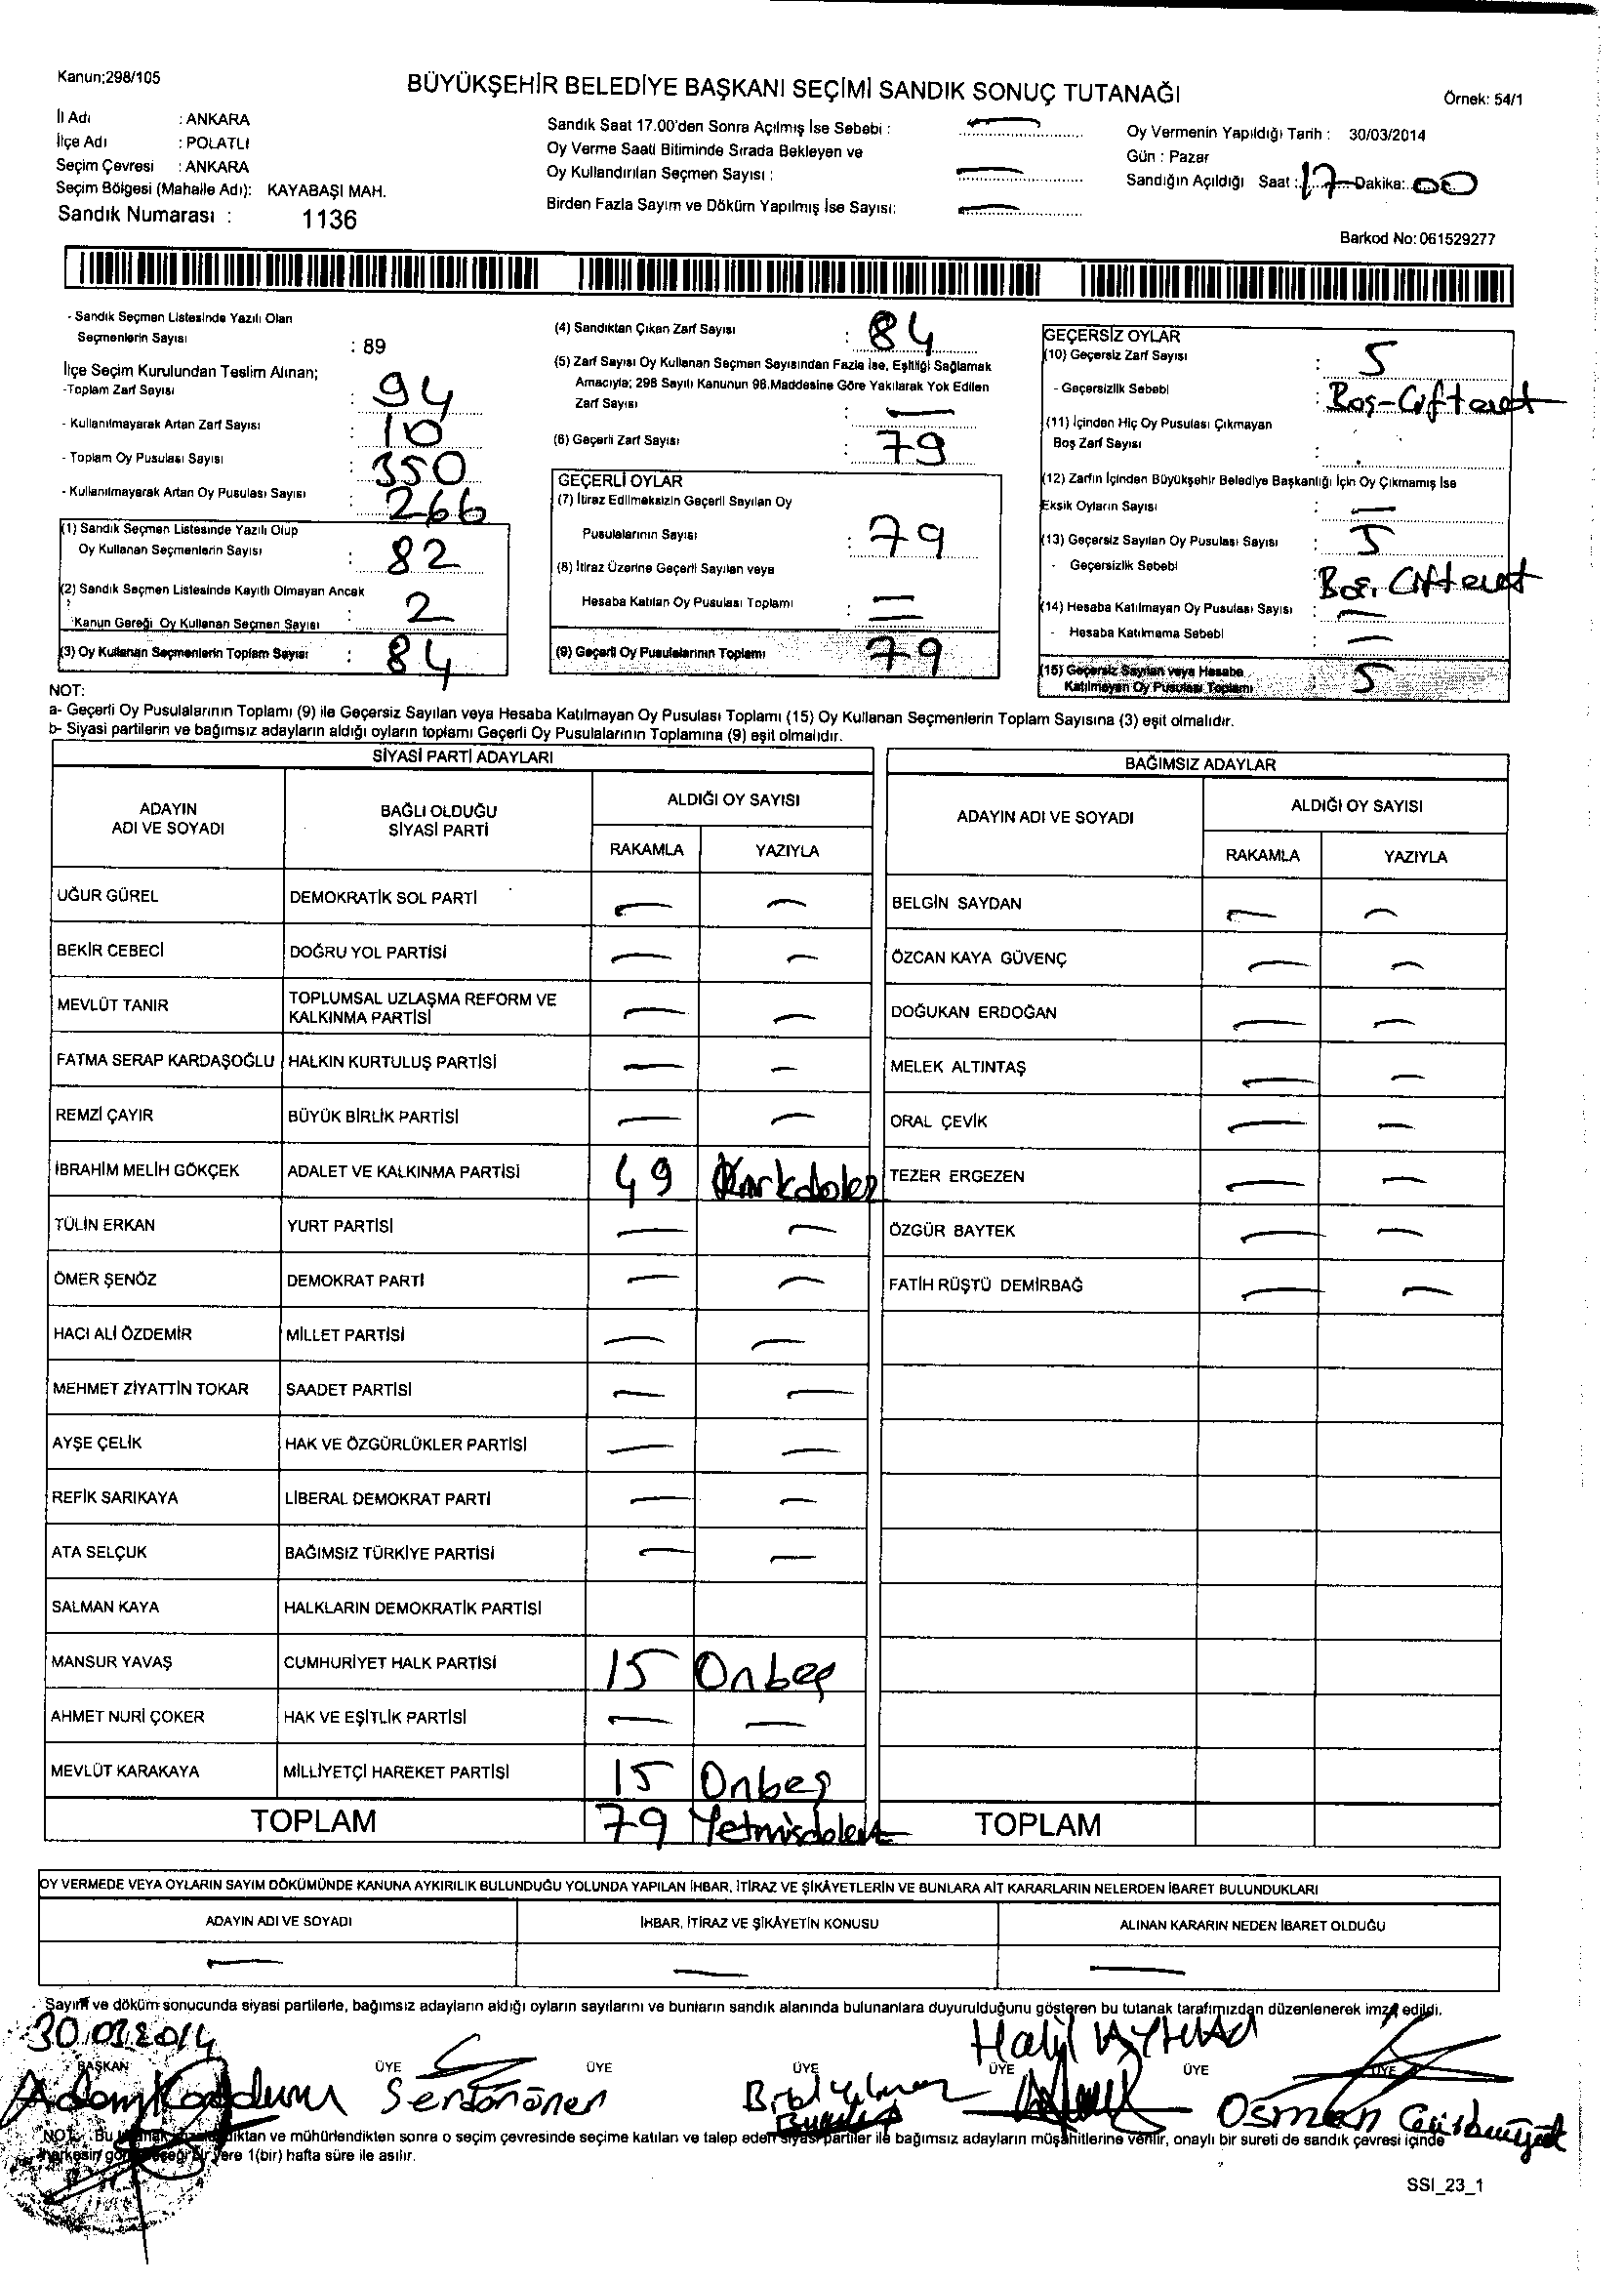 Kanun;298/105
BÜYÜKŞEHİR BELEDİYE BAŞKANI SEÇİMİ SANDIK SONUÇ TUTANAĞI
Örnek: 54/1
İl Adı : ANKARA
İlçe Adı : POLATLI
Seçim Çevresi : ANKARA
Seçim Bölgesi (Mahalle Adı): KAYABAŞI MAH.
Sandık Numarası : 1136
Sandık Saat 17.00'den Sonra Açılmış İse Sebebi : —
Oy Verme Saati Bitiminde Sırada Bekleyen ve
Oy Kullandırılan Seçmen Sayısı : —
Birden Fazla Sayım ve Döküm Yapılmış İse Sayısı: —
Oy Vermenin Yapıldığı Tarih : 30/03/2014
Gün : Pazar
Sandığın Açıldığı Saat : 17 Dakika: 00
Barkod No: 061529277
- Sandık Seçmen Listesinde Yazılı Olan
Seçmenlerin Sayısı : 89
İlçe Seçim Kurulundan Teslim Alınan;
-Toplam Zarf Sayısı : 94
- Kullanılmayarak Artan Zarf Sayısı : 10
- Toplam Oy Pusulası Sayısı : 350
- Kullanılmayarak Artan Oy Pusulası Sayısı : 266
(1) Sandık Seçmen Listesinde Yazılı Olup
Oy Kullanan Seçmenlerin Sayısı : 82
(2) Sandık Seçmen Listesinde Kayıtlı Olmayan Ancak
Kanun Gereği Oy Kullanan Seçmen Sayısı : 2
(3) Oy Kullanan Seçmenlerin Toplam Sayısı : 84
(4) Sandıktan Çıkan Zarf Sayısı : 84
(5) Zarf Sayısı Oy Kullanan Seçmen Sayısından Fazla İse, Eşitliği Sağlamak
Amacıyla; 298 Sayılı Kanunun 98.Maddesine Göre Yakılarak Yok Edilen
Zarf Sayısı : —
(6) Geçerli Zarf Sayısı : 79
GEÇERLİ OYLAR
(7) İtiraz Edilmeksizin Geçerli Sayılan Oy
Pusulalarının Sayısı : 79
(8) İtiraz Üzerine Geçerli Sayılan veya
Hesaba Katılan Oy Pusulası Toplamı : —
(9) Geçerli Oy Pusulalarının Toplamı 79
GEÇERSİZ OYLAR
(10) Geçersiz Zarf Sayısı : 5
- Geçersizlik Sebebi : Boş-Çift evet
(11) İçinden Hiç Oy Pusulası Çıkmayan
Boş Zarf Sayısı :
(12) Zarfın İçinden Büyükşehir Belediye Başkanlığı İçin Oy Çıkmamış İse
Eksik Oyların Sayısı : —
(13) Geçersiz Sayılan Oy Pusulası Sayısı : 5
- Geçersizlik Sebebi : Boş. Çift evet
(14) Hesaba Katılmayan Oy Pusulası Sayısı : —
- Hesaba Katılmama Sebebi —
(15) Geçersiz Sayılan veya Hesaba
Katılmayan Oy Pusulası Toplamı 5
NOT:
a- Geçerli Oy Pusulalarının Toplamı (9) ile Geçersiz Sayılan veya Hesaba Katılmayan Oy Pusulası Toplamı (15) Oy Kullanan Seçmenlerin Toplam Sayısına (3) eşit olmalıdır.
b- Siyasi partilerin ve bağımsız adayların aldığı oyların toplamı Geçerli Oy Pusulalarının Toplamına (9) eşit olmalıdır.
SİYASİ PARTİ ADAYLARI
ADAYIN ADI VE SOYADI
BAĞLI OLDUĞU SİYASİ PARTİ
ALDIĞI OY SAYISI
RAKAMLA YAZIYLA
UĞUR GÜREL DEMOKRATİK SOL PARTİ — —
BEKİR CEBECİ DOĞRU YOL PARTİSİ — —
MEVLÜT TANIR TOPLUMSAL UZLAŞMA REFORM VE KALKINMA PARTİSİ — —
FATMA SERAP KARDAŞOĞLU HALKIN KURTULUŞ PARTİSİ — —
REMZİ ÇAYIR BÜYÜK BİRLİK PARTİSİ — —
İBRAHİM MELİH GÖKÇEK ADALET VE KALKINMA PARTİSİ 49
TÜLİN ERKAN YURT PARTİSİ — —
ÖMER ŞENÖZ DEMOKRAT PARTİ — —
HACI ALİ ÖZDEMİR MİLLET PARTİSİ — —
MEHMET ZİYATTİN TOKAR SAADET PARTİSİ — —
AYŞE ÇELİK HAK VE ÖZGÜRLÜKLER PARTİSİ — —
REFİK SARIKAYA LİBERAL DEMOKRAT PARTİ — —
ATA SELÇUK BAĞIMSIZ TÜRKİYE PARTİSİ — —
SALMAN KAYA HALKLARIN DEMOKRATİK PARTİSİ
MANSUR YAVAŞ CUMHURİYET HALK PARTİSİ 15 Onbeş
AHMET NURİ ÇOKER HAK VE EŞİTLİK PARTİSİ — —
MEVLÜT KARAKAYA MİLLİYETÇİ HAREKET PARTİSİ 15 Onbeş
TOPLAM 79
BAĞIMSIZ ADAYLAR
ADAYIN ADI VE SOYADI
ALDIĞI OY SAYISI
RAKAMLA YAZIYLA
BELGİN SAYDAN — —
ÖZCAN KAYA GÜVENÇ — —
DOĞUKAN ERDOĞAN — —
MELEK ALTINTAŞ — —
ORAL ÇEVİK — —
TEZER ERGEZEN — —
ÖZGÜR BAYTEK — —
FATİH RÜŞTÜ DEMİRBAĞ — —
TOPLAM
OY VERMEDE VEYA OYLARIN SAYIM DÖKÜMÜNDE KANUNA AYKIRILIK BULUNDUĞU YOLUNDA YAPILAN İHBAR, İTİRAZ VE ŞİKÂYETLERİN VE BUNLARA AİT KARARLARIN NELERDEN İBARET BULUNDUKLARI
ADAYIN ADI VE SOYADI İHBAR, İTİRAZ VE ŞİKÂYETİN KONUSU ALINAN KARARIN NEDEN İBARET OLDUĞU
— — —
Sayım ve döküm sonucunda siyasi partilerle, bağımsız adayların aldığı oyların sayılarını ve bunların sandık alanında bulunanlara duyurulduğunu gösteren bu tutanak tarafımızdan düzenlenerek imza edildi.
30.03.2014
BAŞKAN ÜYE ÜYE ÜYE ÜYE ÜYE ÜYE
Halil
Osman
NOT: Bu ve mühürlendikten sonra o seçim çevresinde seçime katılan ve talep eden siyasi partiler ile bağımsız adayların müşahitlerine verilir, onaylı bir sureti de sandık çevresi içinde
herkesin bir yere 1(bir) hafta süre ile asılır.
SSI_23_1